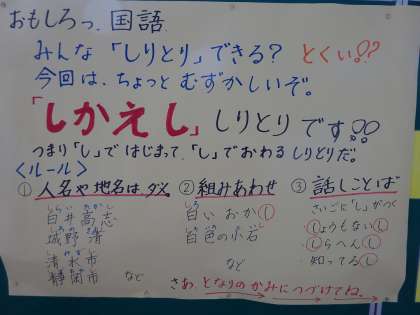 おもしろっ、国語
みんな「しりとり」できる? とくい!?
今回は、ちょっと むずかしいぞ。
「しかえし」しりとり です!!
つまり「し」で はじまって、「し」でおわる しりとりだ。
<ルール>
① 人名や地名は、ダメ
白井高志
城野 清
清水市
静岡市 など
② 組みあわせ
白い おかし
白色の小石
など
③ 話しことば
さいごに「し」がつく
しょうもないし
しらへんし
知ってるし
さあ、となりの かみに つづけてね。